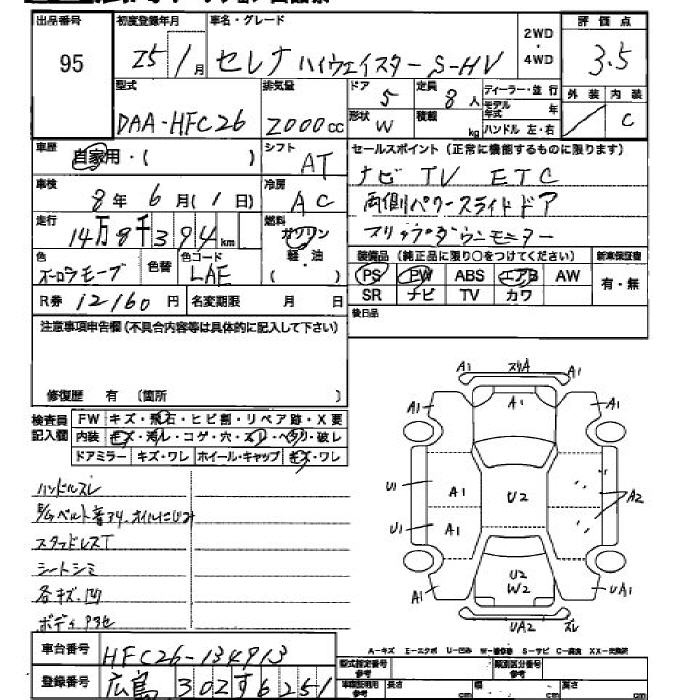 出品番号 初度登録年月 車名・グレード 2WD・4WD 評価点
95 25年1月 セレナ ハイウェイスター S-HV 3.5
型式 排気量 ドア 5 定員 8人 ディーラー・並行 外装 内装
DAA-HFC26 2000cc 形状 W 積載 kg モデル年式 年 C
ハンドル 左・右
車歴 自家用・( ) シフト AT セールスポイント(正常に機能するものに限ります)
車検 8年6月(1日) 冷房 AC ナビ TV ETC
走行 14万8千394km 燃料 ガソリン・軽・油( ) 両側パワースライドドア
色 オーロラモーブ 色替 色コード LAE
装備品(純正品に限り○をつけてください) 新車保証書
PS PW ABS エアB AW 有・無
SR ナビ TV カワ
R券 12160円 名変期限 月 日 後日品
注意事項申告欄(不具合内容等は具体的に記入して下さい)
修復歴 有 〔箇所 〕
検査員記入欄 FW キズ・飛石・ヒビ割・リペア跡・X要
内装 キズ・汚レ・コゲ・穴・スレ・ヘタリ・破レ
ドアミラー キズ・ワレ ホイール・キャップ キズ・ワレ
ハンドルスレ
スタッドレスT
シートシミ
各キズ、凹
ボディアセ
A1 スリA A1
A1 A1 A1
U1 A1 U2 A2
U1 A1
U2
W2
A1 UA1
UA2 スレ
A-キズ E-エクボ U-凹み W-補修跡 S-サビ C-腐食 XX-交換済
車台番号 HFC26-134913
型式指定番号 参考 類別区分番号 参考
登録番号 広島 302す6251
車体証明用 参考 長さ cm 幅 cm 高さ cm